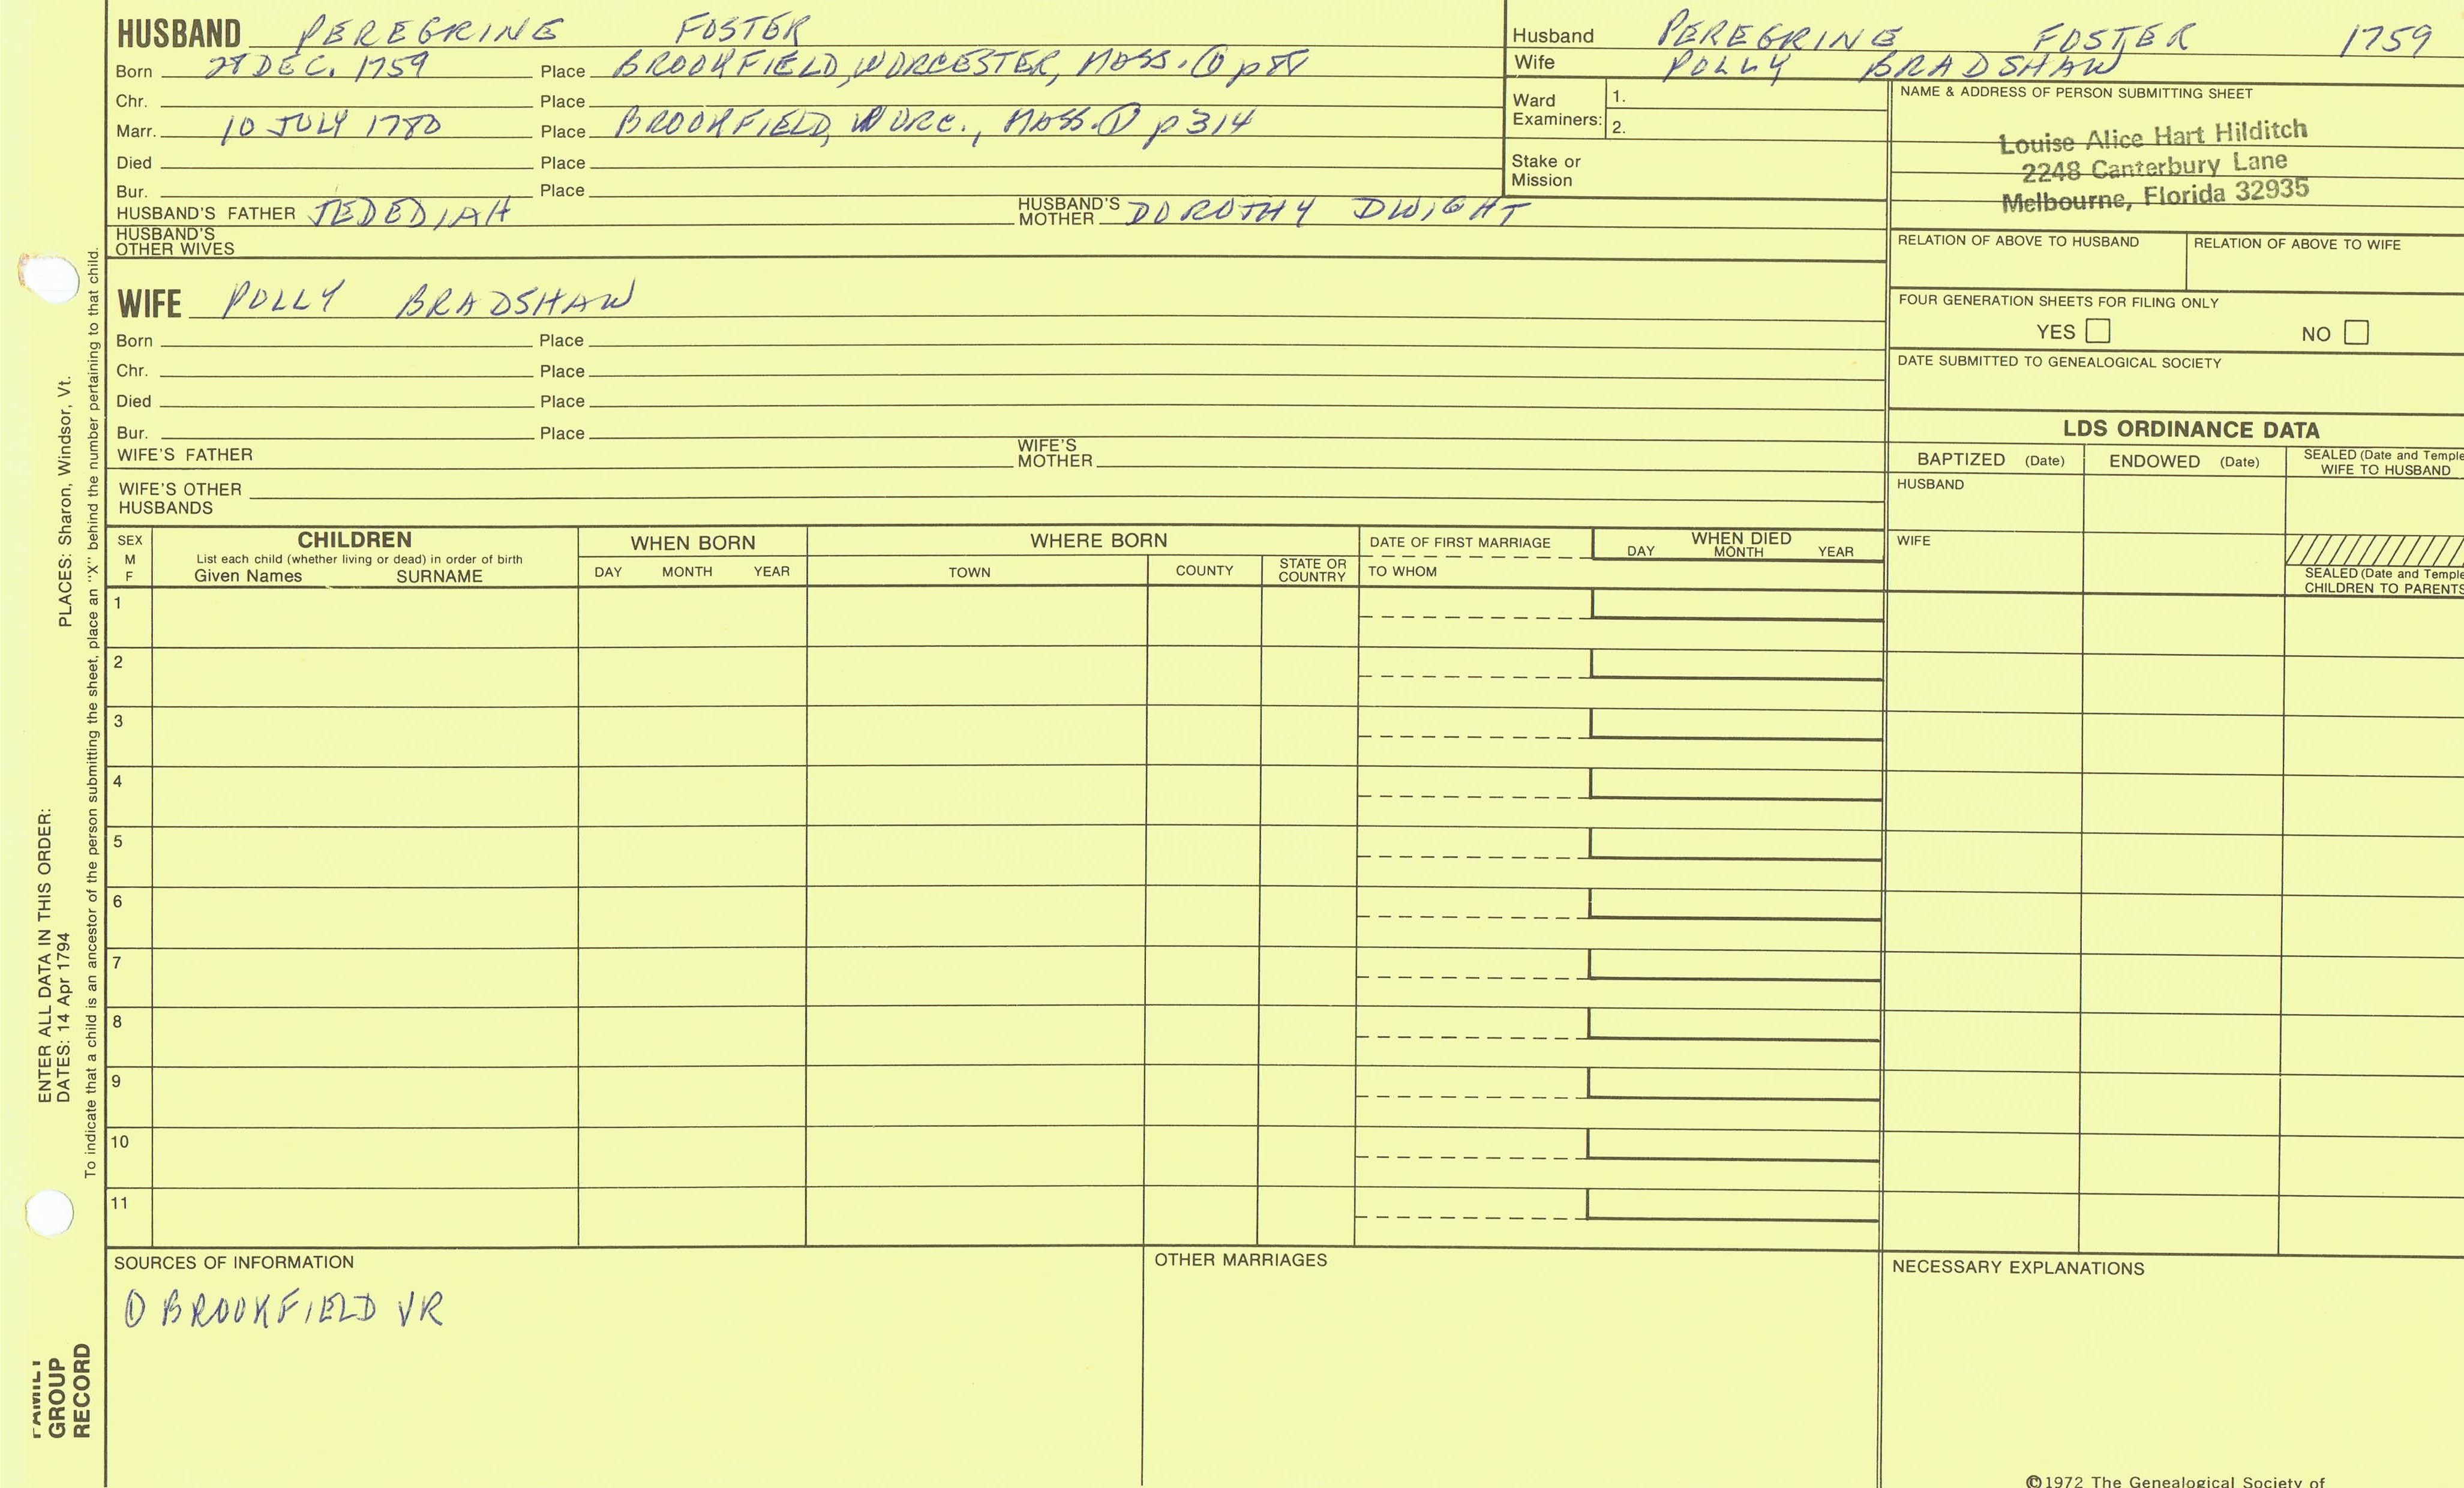 HUSBAND PEREGRINE FOSTER
Born 28 DEC. 1759 Place BROOKFIELD, WORCESTER, MASS. ① p 88
Chr. Place
Marr. 10 JULY 1780 Place BROOKFIELD, WORC., MASS. ① p 314
Died Place
Bur. Place
HUSBAND'S FATHER JEDEDIAH HUSBAND'S MOTHER DOROTHY DWIGHT
HUSBAND'S OTHER WIVES
Husband PEREGRINE FOSTER 1759
Wife POLLY BRADSHAW
Ward Examiners: 1.
2.
Stake or Mission
NAME & ADDRESS OF PERSON SUBMITTING SHEET
Louise Alice Hart Hilditch
2248 Canterbury Lane
Melbourne, Florida 32935
RELATION OF ABOVE TO HUSBAND RELATION OF ABOVE TO WIFE
FOUR GENERATION SHEETS FOR FILING ONLY
YES NO
DATE SUBMITTED TO GENEALOGICAL SOCIETY
WIFE POLLY BRADSHAW
Born Place
Chr. Place
Died Place
Bur. Place
WIFE'S FATHER WIFE'S MOTHER
WIFE'S OTHER HUSBANDS
LDS ORDINANCE DATA
BAPTIZED (Date) ENDOWED (Date) SEALED (Date and Temple
WIFE TO HUSBAND
HUSBAND
WIFE
SEALED (Date and Temple
CHILDREN TO PARENTS
SEX
M
F
CHILDREN
List each child (whether living or dead) in order of birth
Given Names SURNAME
WHEN BORN
DAY MONTH YEAR
WHERE BORN
TOWN COUNTY STATE OR COUNTRY
DATE OF FIRST MARRIAGE
TO WHOM
WHEN DIED
DAY MONTH YEAR
1
2
3
4
5
6
7
8
9
10
11
SOURCES OF INFORMATION
① BROOKFIELD VR
OTHER MARRIAGES
NECESSARY EXPLANATIONS
©1972 The Genealogical Society of
ENTER ALL DATA IN THIS ORDER:
DATES: 14 Apr 1794 PLACES: Sharon, Windsor, Vt.
To indicate that a child is an ancestor of the person submitting the sheet, place an "X" behind the number pertaining to that child.
FAMILY
GROUP
RECORD